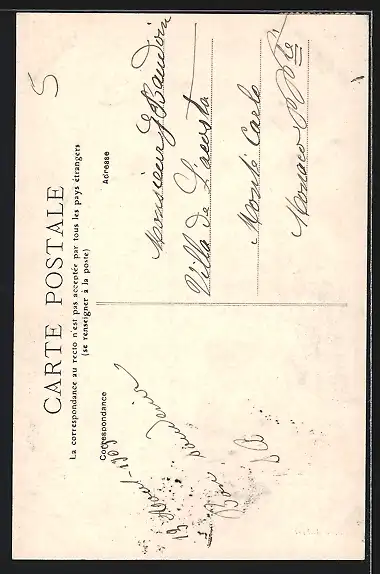 5
CARTE POSTALE
La correspondance au recto n'est pas acceptée par tous les pays étrangers
(se renseigner à la poste)
Correspondance
Adresse
19 Aout - 1905
Bon souvenir
Monsieur J Baudoin
Villa de Lacosta
Monte Carlo
Monaco Pté